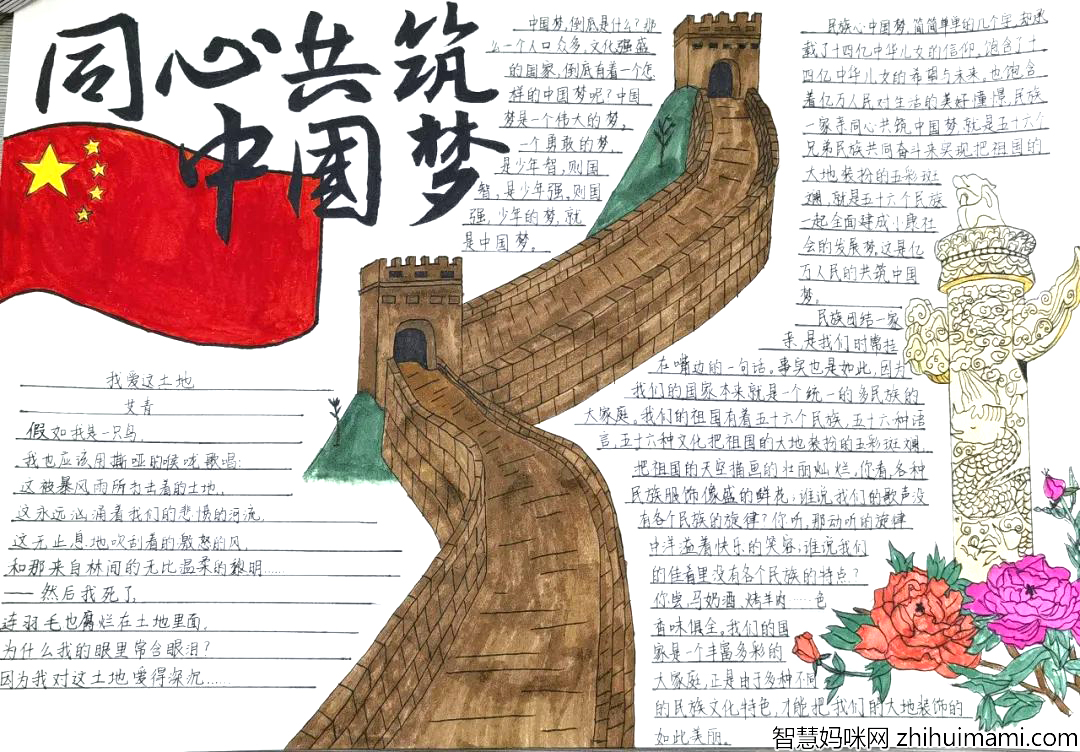 同心共筑
中国梦
中国梦,倒底是什么?那
么一个人口众多,文化强盛
的国家,倒底有着一个怎
样的中国梦呢?中国
梦是一个伟大的梦。
一个勇敢的梦,
是少年智,则国
智,是少年强,则国
强,少年的梦,就
是中国梦。
我爱这土地
艾青
假如我是一只鸟,
我也应该用撕哑的喉咙歌唱:
这被暴风雨所打击着的土地,
这永远汹涌着我们的悲愤的河流,
这无止息地吹刮着的激怒的风,
和那来自林间的无比温柔的黎明……
——然后我死了,
连羽毛也腐烂在土地里面,
为什么我的眼里常含眼泪?
因为我对这土地爱得深沉……
民族心中国梦,简简单单的几个字,却承
载了十四亿中华儿女的信仰,饱含了十
四亿中华儿女的希望与未来,也饱含
着亿万人民对生活的美好憧憬,民族
一家亲同心共筑中国梦,就是五十六个
兄弟民族共同奋斗来实现把祖国的
大地装扮的五彩斑
斓,就是五十六个民族
一起全面建成小康社
会的发展梦,这是亿
万人民的共筑中国
梦。
民族团结一家
亲,是我们时常挂
在嘴边的一句话。事实也是如此,因为
我们的国家本来就是一个统一的多民族的
大家庭。我们的祖国有着五十六个民族,五十六种语
言,五十六种文化把祖国的大地装扮的五彩斑斓,
把祖国的天空描画的壮丽灿烂,你看,各种
民族服饰像盛的鲜花;谁说我们的歌声没
有各个民族的旋律?你听,那动听的旋律
中洋溢着快乐的笑容;谁说我们
的佳肴里没有各个民族的特点?
你尝,马奶酒、烤羊肉……色
香味俱全。我们的国
家是一个丰富多彩的
大家庭,正是由于多种不同
的民族文化特色,才能把我们的大地装饰的
如此美丽。
智慧妈咪网 zhihuimami.com